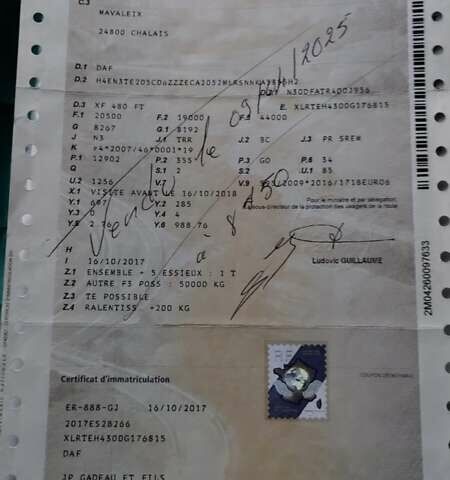 C.3
MAVALEIX
24800 CHALAIS
D.1 DAF
D.2
D.2.1 N30DFATR400J956
D.3 XF 480 FT
E. XLRTEH4300G176815
F.1 20500 F.2 19000 F.3 44000
G 8267 G.1 8192
J N3 J.1 TRR J.2 BC J.3 PR SREM
K
P.1 12902 P.2 355 P.3 GO P.6 34
Q S.1 2 S.2 U.1 85
U.2 1256 V.7
X.1 VISITE AVANT LE 16/10/2018
Y.1 697 Y.2 285
Y.3 0 Y.4 4
Y.5 2.76 Y.6 988.76
Vendu le
2025
à 8
H
I 16/10/2017
Z.1 ENSEMBLE + 5 ESSIEUX : 1 T
Z.2 AUTRE F3 POSS : 50000 KG
Z.3 TE POSSIBLE
Z.4 RALENTISS +200 KG
Pour le ministre et par délégation,
Le sous-directeur de la protection des usagers de la route
Ludovic GUILLAUME
2M04260097633
Certificat d'immatriculation
COUPON DÉTACHABLE
ER-888-GJ 16/10/2017
2017ES28266
XLRTEH4300G176815
DAF
JP GADEAU ET FILS